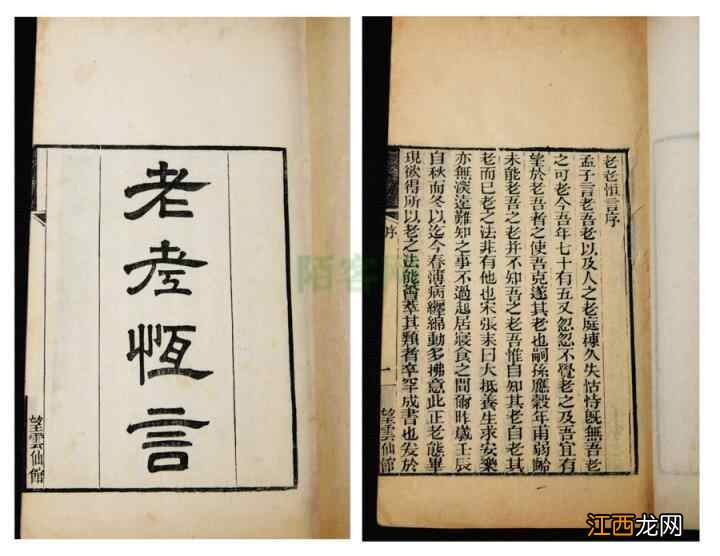 老老恆言
望雲仙館
老老恒言序
孟子言老吾老以及人之老庭棟久失怙恃既無吾老
之可老今吾年七十有五又忽忽不覺老之及吾宜有
望於老吾者之使吾克遂其老也嗣孫應榖年甫弱齡
未能老吾之老并不知吾之老吾惟自知其老自老其
老而已老之法非有他也宋張耒曰大抵養生求安樂
亦無深遠難知之事不過起居寢食之間爾昨歲壬辰
自秋而冬以迄今春薄病纏綿動多拂意此正老態畢
現欲得所以老之法能薈萃其類者卒罕成書也爰於
序
一
望雲仙館
陌客网
江西龙网